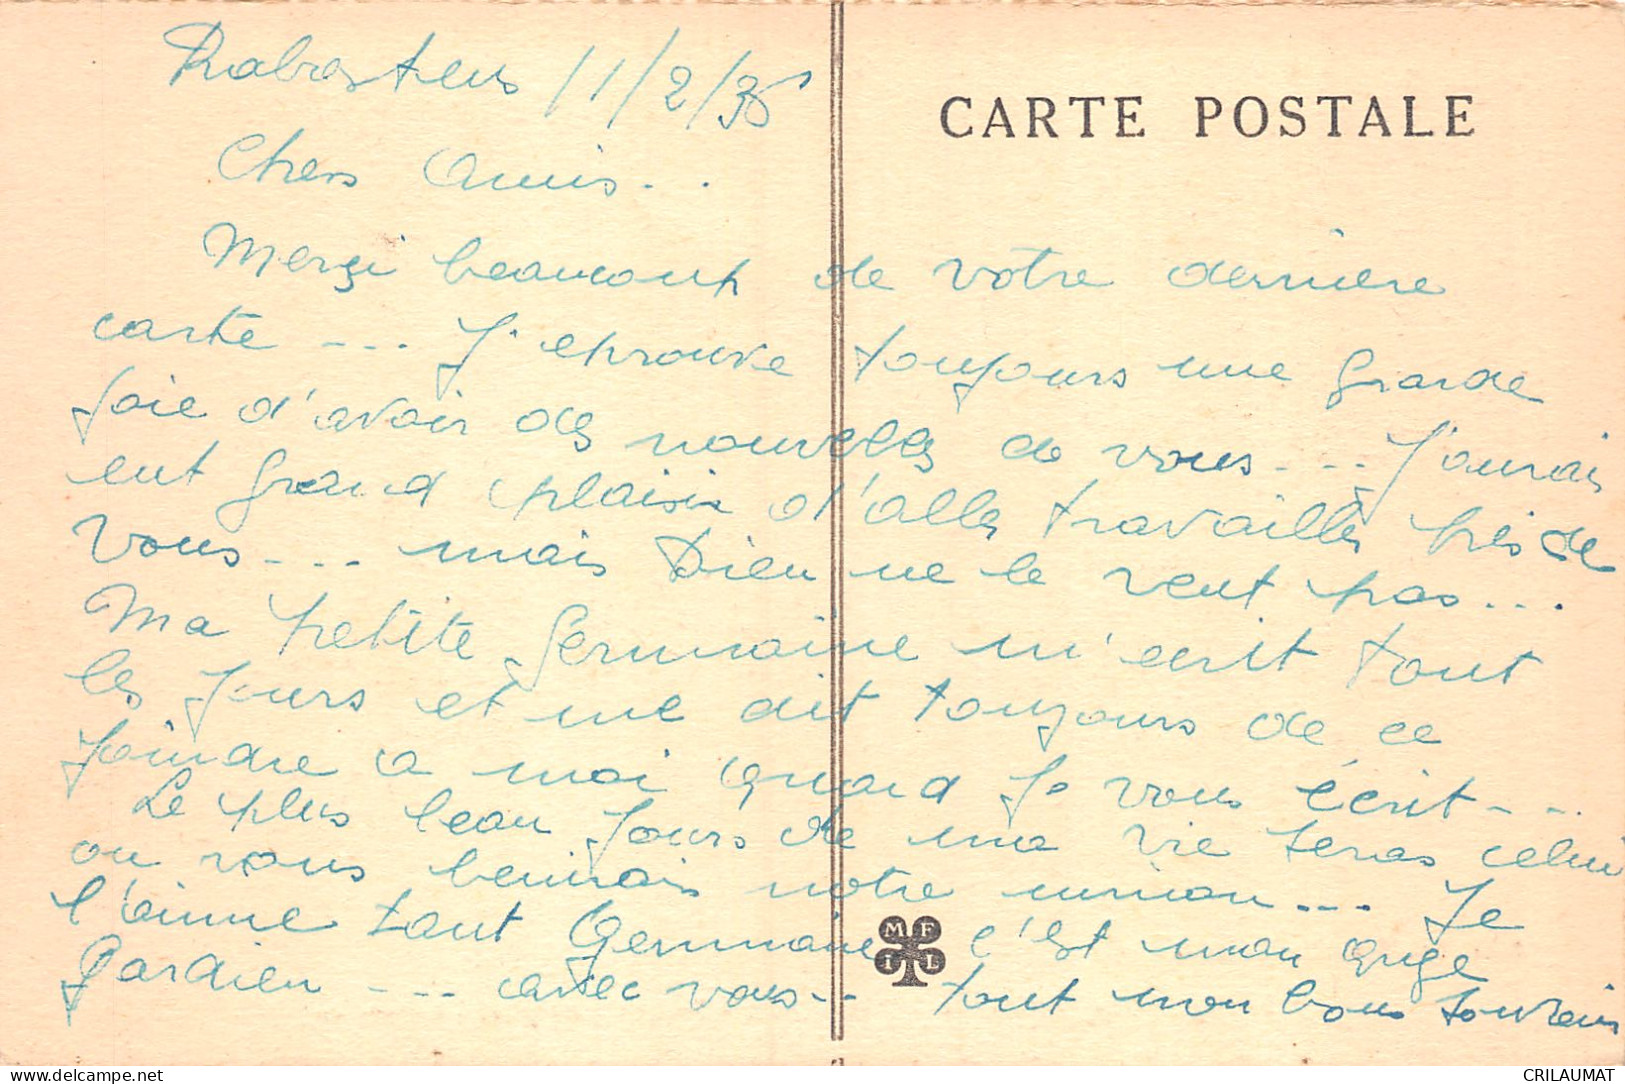 Rabastens 11/2/36
CARTE POSTALE
Chers Amis..
Merçi beaucoup de votre derniere
carte --- J'eprouve toujours une grande
joie d'avoir des nouvelles de vous --- J'aurai
eut grand plaisir d'aller travailler près de
vous --- mais Dieu ne le veut pas...
Ma petite Germaine m'ecrit tout
les jours et me dit toujours de ce
joindre a moi quand je vous écrit ---
Le plus beau jours de ma vie seras celui
ou vous benirais notre union --- Je
l'aime tant Germaine c'est mon ange
gardien --- avec vous -- tout mon bons souvenir
MF
IL
delcampe.net
CRILAUMAT